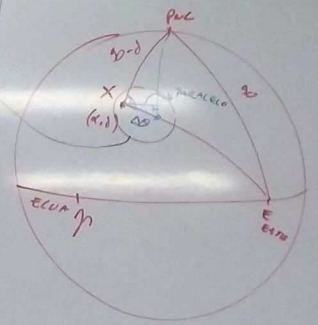 PNC
90-δ
90
X
PARALELO
(α,δ)
Δθ
ECUA
γ
E
ESTE